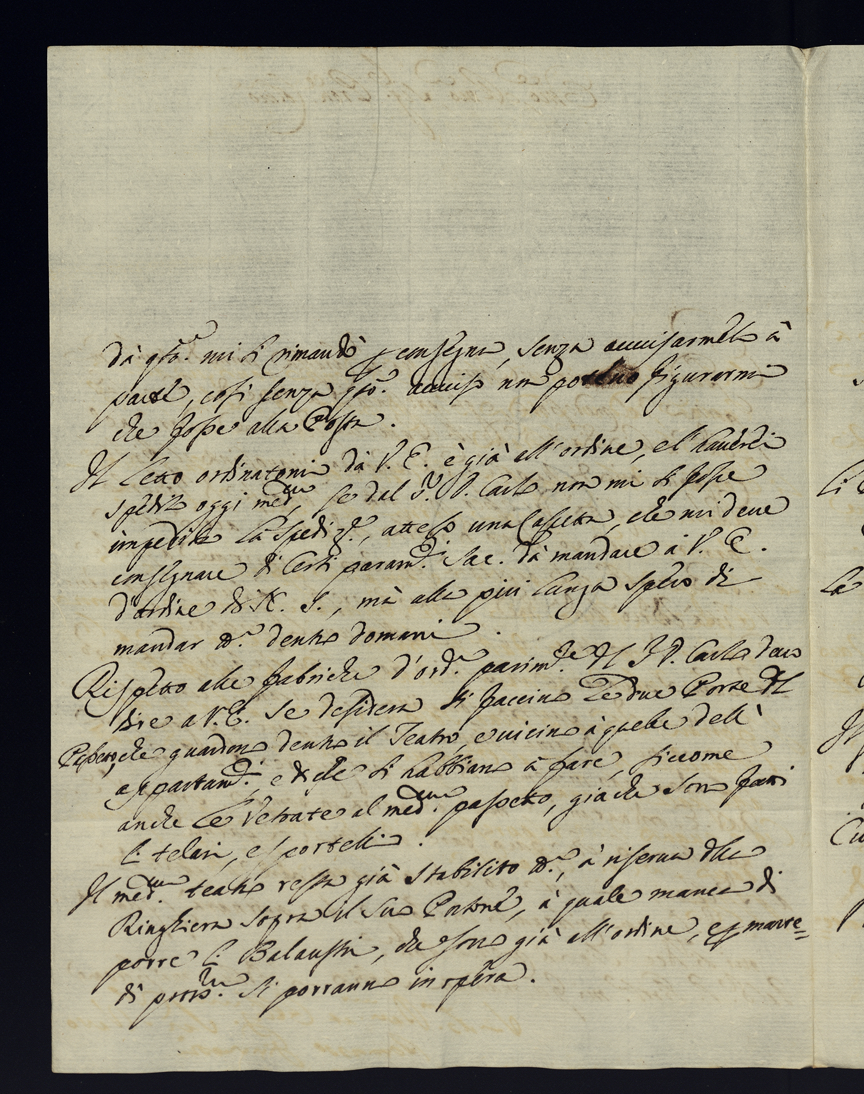 dà q.sto mi si rimandò p consegna, senza avvisarmelo à
parte, così senza q.sto avviso non potevo figurarmi
che fosse alla Posta.
Il Letto ordinatomi dà V. E. è già all'ordine, e l'haverei
spedito oggi med.mo, se dal P. Carlo non mi si fosse
impedita la Spediz.e, atteso una Cassetta, che mi deve
consegnare di Certi param.ti Sac. dà mandare à V. E.
d'ordine di mà alla più lunga spero di
mandar dentro domani.
Rispetto alle fabriche d'ord.e parim.te Il P. Carlo devo
dire a V. E. se desidera si faccino Le due Porte
che guardono dentro il Teatro, e vicino à quelle dell'
appartam.to, e se si habbiano à fare, siccome
anche Le Vetrate al med.mo passetto, già che sono fatti
li telari, e sportelli.
Il med.mo teatro resta già Stabilito à riserva della
Ringhiera sopra il Suo Portone, à quale manca di
porre li Balaustri, che sono già all'ordine, e p marte=
dì pross.mo Si porranno in opera.